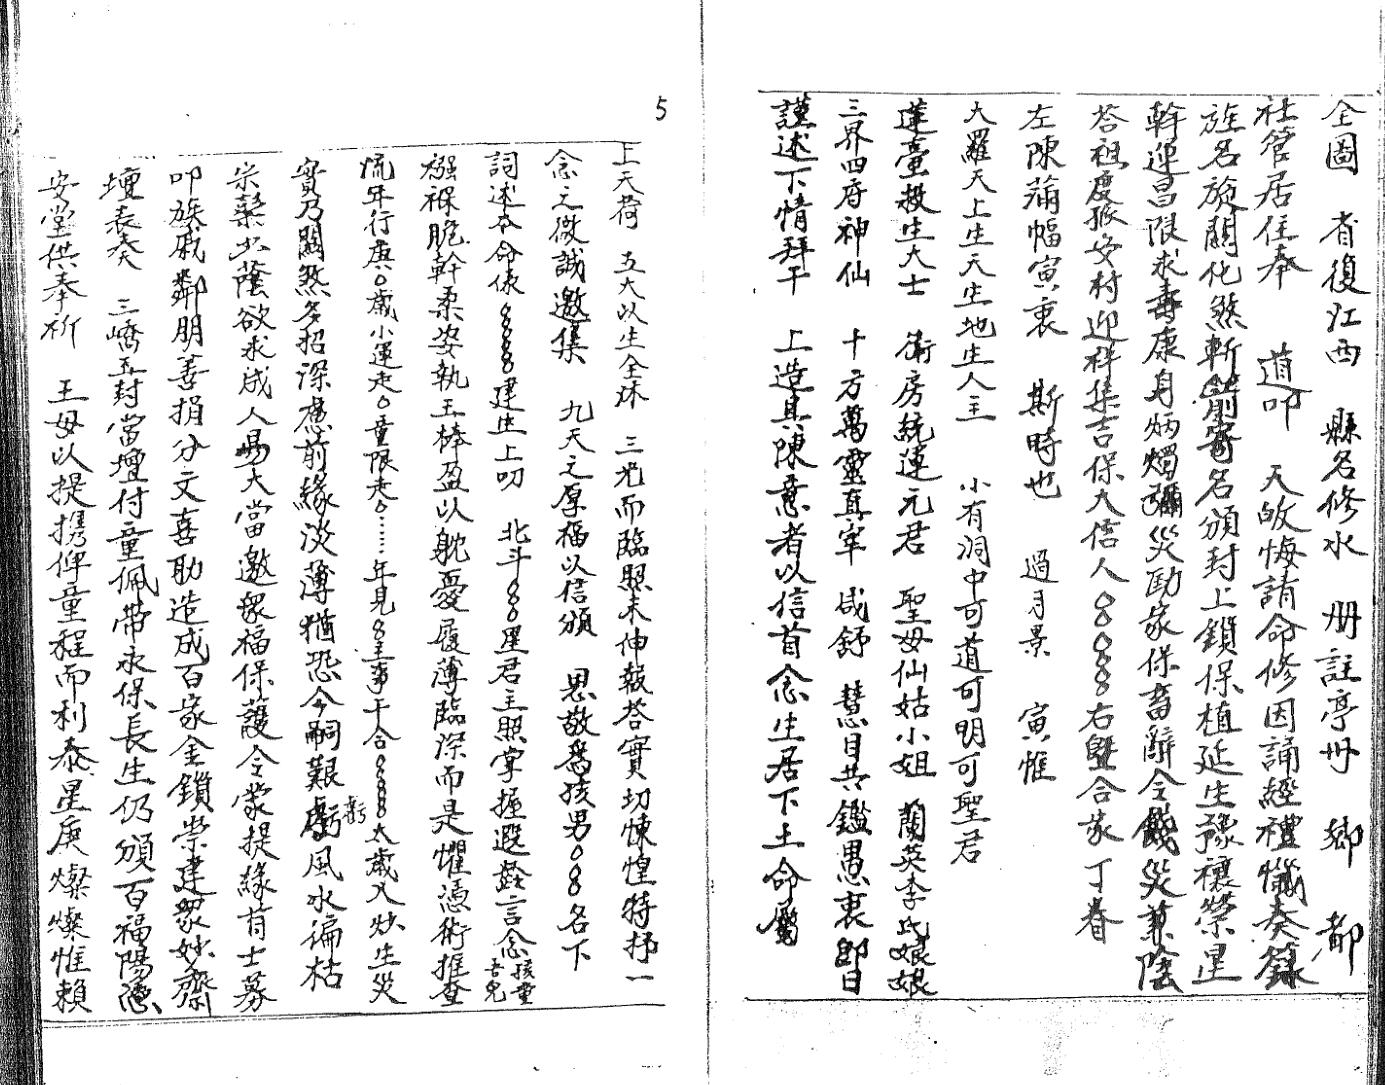 全圖 省復江西 縣名修水 卅註亭卅 鄉 都
社管居住奉 道叩 天啟悔請命修因誦經禮懺奏錄
旌名旋關化煞斬箭寄名頒封上鎖保植延生豫禳榮星
斡運昌限求壽康身炳燭彌災勛家保畜辭令餞災兼陰
荅祖度孤安村迎祥集吉保大信人〇〇〇〇右暨合家丁眷
左陳菊幅寅衷 斯時也 過月景 寅惟
大羅天上生天生地生人主 小有洞中可道可明可聖君
蓮臺救生大士 衛房統運元君 聖母仙姑小姐 蘭英李氏娘娘
三界四府神仙 十方萬靈真宰 咸舒 慧目共鑑愚衷即日
謹述下情拜干 上造具陳意者以信首念生居下土命屬
5
上天荷 五大以生全沐 三光而臨照未伸報荅實切悚惶特抒一
念之微誠邀集 九天之厚福以信頒 恩敬為孩男〇〇〇名下
詞述本命係〇〇〇〇建生上叨 北斗〇〇〇星君主照掌握遐齡言念孩童吾兒
襁褓脆幹柔姿執玉捧盈以躭憂履薄臨深而是懼憑術推查
流年行庚〇歲小運走〇童限走〇……年見〇主事干合〇〇〇〇太歲又炒生災
實乃關煞多招深慮前緣淡薄猶恐今嗣艱虧虧風水偏枯
宗蘗少蔭欲求成人易大當邀眾福保護今蒙提緣首士募
叩族戚鄰朋善捐分文喜助造成百家金鎖榮建眾妙齋
壇表奏 三嶠五封當壇付童佩帶永保長生仍頒百福陽憑
安堂供奉祈 王母以提携俾童程而利泰星庚燦燦惟賴